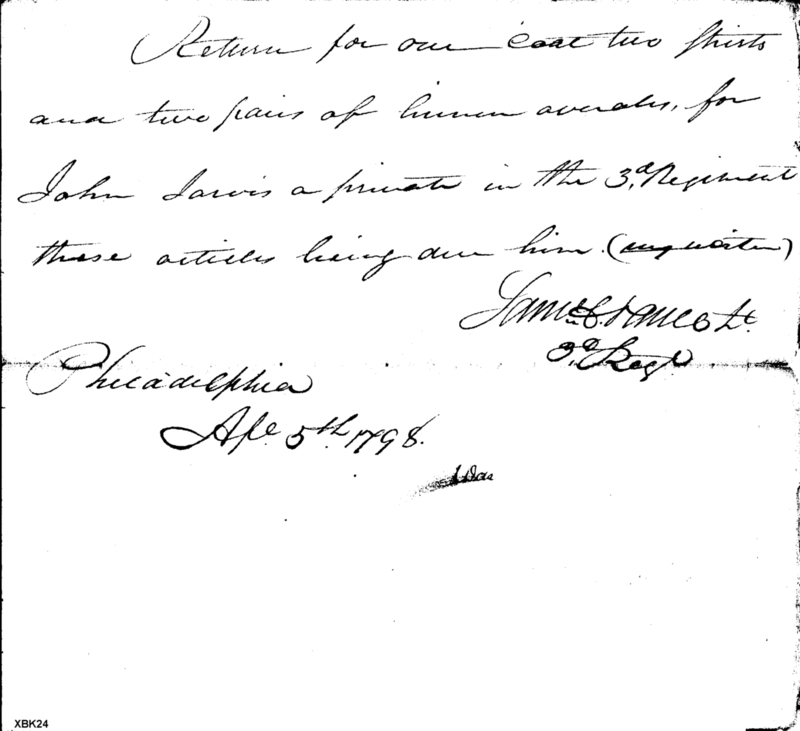 Return for one coat two shirts
and two pairs of linnen overals, for
John Jarvis a private in the 3d. Regiment
these articles being due him.
3d. Regt
Philadelphia
Apl. 5th. 1798.
XBK24